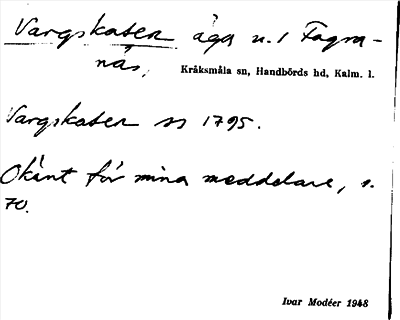 Vargskaten äga n. 1 Fagra-
näs,
Kråksmåla sn, Handbörds hd, Kalm. l.
Vargskaten ss 1795.
Okänt för mina meddelare, s.
70.
Ivar Modéer 1948